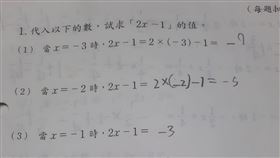 (每題
1. 代入以下的數,試求「2x－1」的值。
(1) 當 x=－3 時,2x－1=2×(－3)－1= －7
(2) 當 x=－2 時,2x－1= 2×(－2)－1=－5
(3) 當 x=－1 時,2x－1= －3